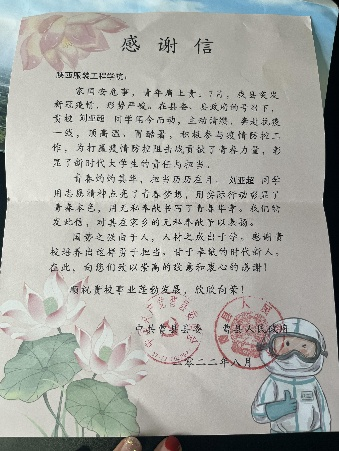 感谢信
陕西服装工程学院：
家国安危事，青年肩上责。7月，我县突发
新冠疫情，形势严峻。在县委、县政府的号召下，
贵校 刘亚超 同学闻令而动，主动请缨，奔赴抗疫
一线，顶高温，冒酷暑，积极参与疫情防控工
作，为打赢疫情防控阻击战贡献了青春力量，彰
显了新时代大学生的责任与担当。
青春灼灼其华，担当历历在目。刘亚超 同学
用志愿精神点亮了青春梦想，用实际行动彰显了
青春本色，用无私奉献书写了青春华章。我们特
发此信，对其在家乡的无私奉献予以表扬。
国势之强由于人，人材之成出于学。感谢贵
校培养出这样勇于担当、甘于奉献的时代新人，
在此，向您们致以崇高的敬意和衷心的感谢！
顺祝贵校事业蓬勃发展，欣欣向荣！
中共曹县县委 曹县人民政府
二〇二二年八月